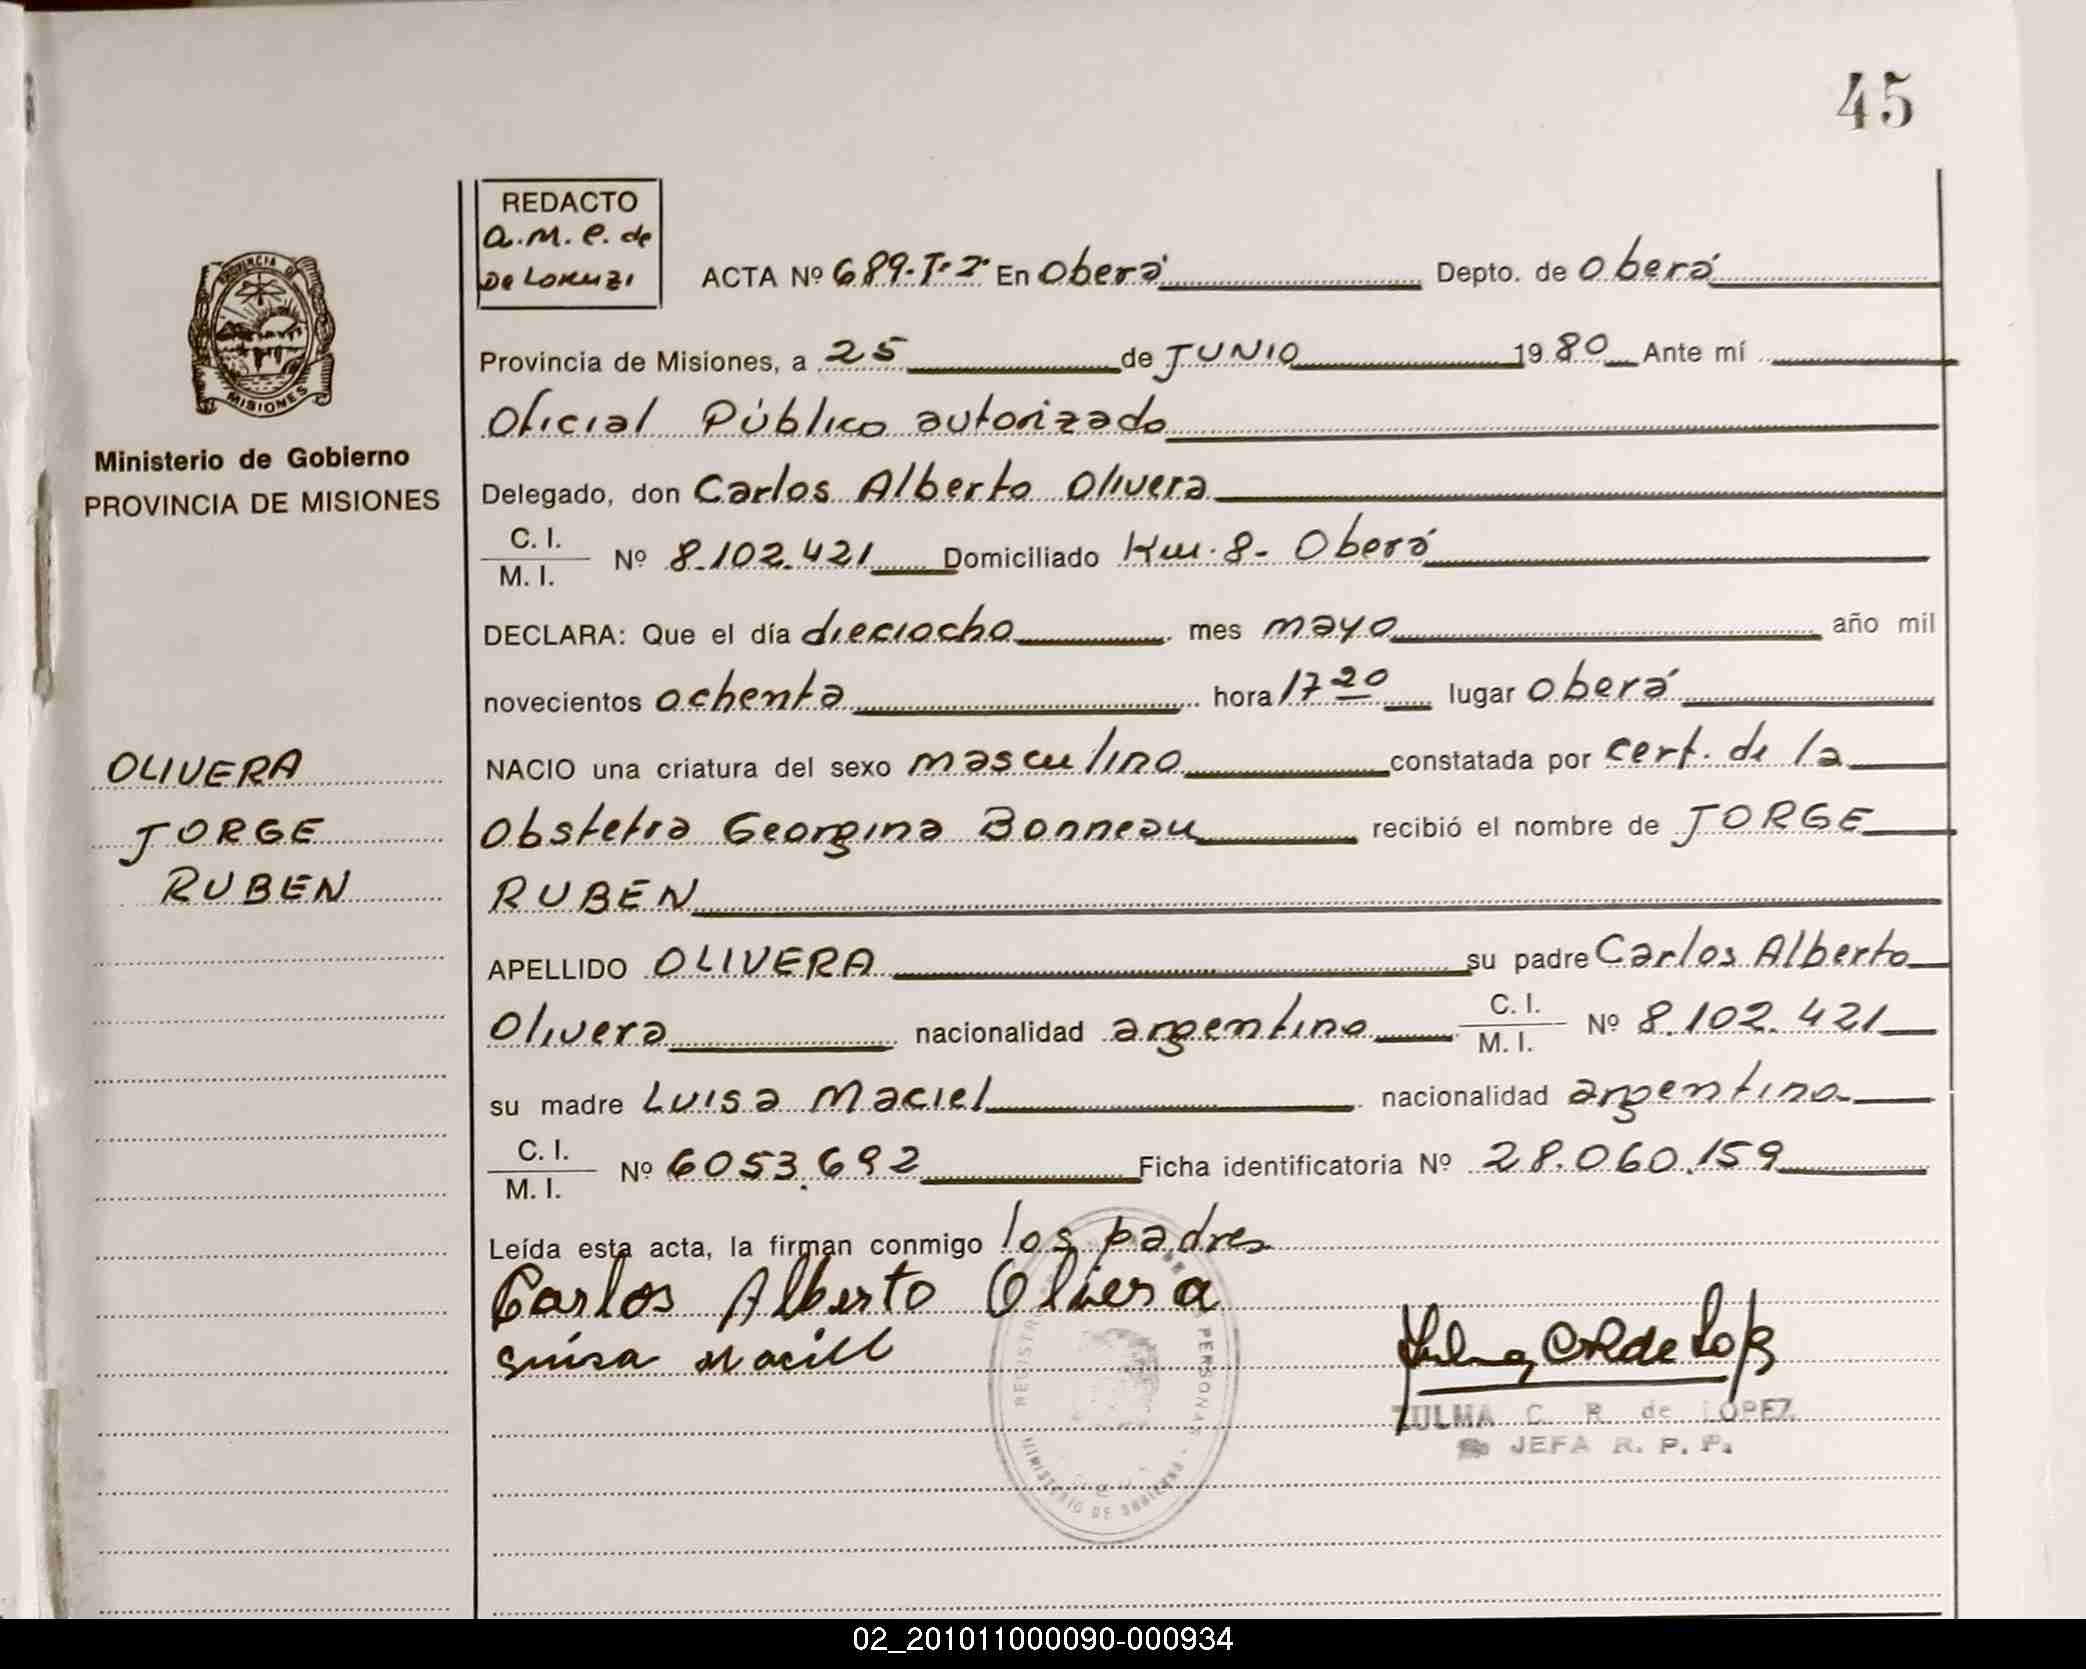 45
REDACTO
a.m.e. de
De Lorenzi
ACTA Nº 689-T-2- En Oberá Depto. de Oberá
PROVINCIA DE
MISIONES
Provincia de Misiones, a 25 de JUNIO 1980 Ante mí
Oficial Público autorizado
Ministerio de Gobierno
PROVINCIA DE MISIONES
Delegado, don Carlos Alberto Olivera
C. I.
M. I. Nº 8.102.421 Domiciliado Km. 8- Oberá
DECLARA: Que el día dieciocho mes mayo año mil
novecientos ochenta hora 17 20 lugar Oberá
OLIVERA
JORGE
RUBEN
NACIO una criatura del sexo masculino constatada por cert. de la
Obstetra Georgina Bonneau recibió el nombre de JORGE
RUBEN
APELLIDO OLIVERA su padre Carlos Alberto
Olivera nacionalidad argentino C. I.
M. I. Nº 8.102.421
su madre Luisa Maciel nacionalidad argentina
C. I.
M. I. Nº 6053.692 Ficha identificatoria Nº 28.060.159
Leída esta acta, la firman conmigo los padres
Carlos Alberto Oliera
Luisa Maciel
ZULMA C. R. de LOPEZ
JEFA R. P. P.
MINISTERIO DE GOBIERNO
02_201011000090-000934